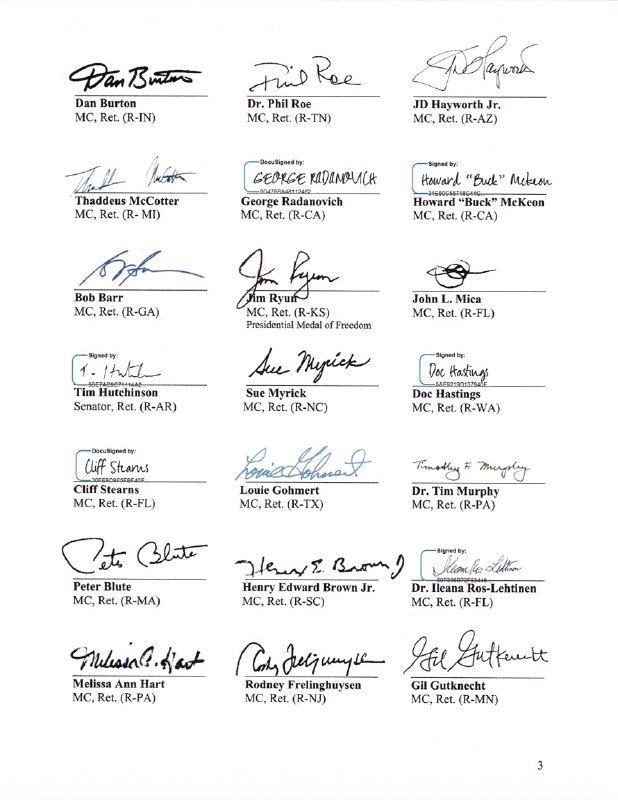 Dan Burton Phil Roe JD Hayworth
Dan Burton Dr. Phil Roe JD Hayworth Jr.
MC, Ret. (R-IN) MC, Ret. (R-TN) MC, Ret. (R-AZ)
DocuSigned by: Signed by:
Thaddeus McCotter GEORGE RADANOVICH Howard "Buck" McKeon
Thaddeus McCotter George Radanovich Howard “Buck” McKeon
MC, Ret. (R- MI) MC, Ret. (R-CA) MC, Ret. (R-CA)
Jim Ryun
Bob Barr Jim Ryun John L. Mica
MC, Ret. (R-GA) MC, Ret. (R-KS) MC, Ret. (R-FL)
Presidential Medal of Freedom
Signed by: Signed by:
T. Hutchinson Sue Myrick Doc Hastings
Tim Hutchinson Sue Myrick Doc Hastings
Senator, Ret. (R-AR) MC, Ret. (R-NC) MC, Ret. (R-WA)
DocuSigned by:
Cliff Stearns Louie Gohmert Timothy F. Murphy
Cliff Stearns Louie Gohmert Dr. Tim Murphy
MC, Ret. (R-FL) MC, Ret. (R-TX) MC, Ret. (R-PA)
Signed by:
Pete Blute Henry E. Brown J Ileana Ros-Lehtinen
Peter Blute Henry Edward Brown Jr. Dr. Ileana Ros-Lehtinen
MC, Ret. (R-MA) MC, Ret. (R-SC) MC, Ret. (R-FL)
Melissa A. Hart Rodney Frelinghuysen Gil Gutknecht
Melissa Ann Hart Rodney Frelinghuysen Gil Gutknecht
MC, Ret. (R-PA) MC, Ret. (R-NJ) MC, Ret. (R-MN)
3